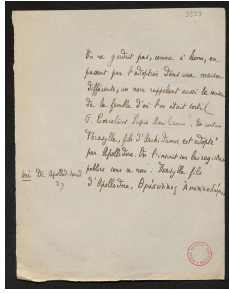 3353
On ne gardait pas, comme à Rome, en
passant par l'adoption dans une maison
différente, un nom rappelant aussi la maison
de la famille d'où l'on était sorti (
P. Cornelius Scipio Aemilianus), un certain
Thrasylle, fils d'
est adopté
par Apollodore. On l'inscrit sur les registres
publics sous ce nom : Thrasylle fils
d'Apollodore, Θράσυλλος Ἀπολλοδώρου
27